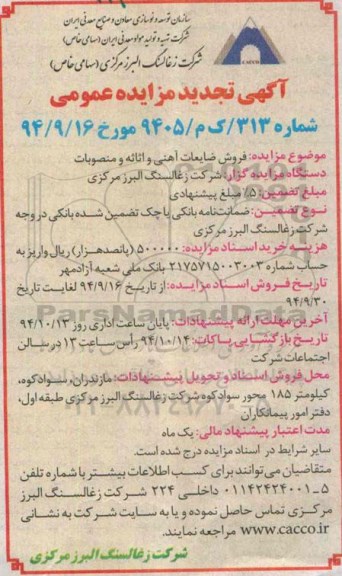 سازمان توسعه و نوسازی معادن و صنایع معدنی ایران
شرکت تهیه و تولید مواد معدنی ایران (سهامی خاص)
شرکت زغالسنگ البرز مرکزی (سهامی خاص)
CACCO
آگهی تجدید مزایده عمومی
شماره ۳۱۳/ک م/۹۴۰۵ مورخ ۹۴/۹/۱۶
موضوع مزایده: فروش ضایعات آهنی و اثاثه و منصوبات
دستگاه مزایده گزار: شرکت زغالسنگ البرز مرکزی
مبلغ تضمین: ۵٪ مبلغ پیشنهادی
نوع تضمین: ضمانت‌نامه بانکی یا چک تضمین شده بانکی در وجه
شرکت زغالسنگ البرز مرکزی
هزینه خرید اسناد مزایده: ۵۰۰۰۰۰ (پانصد هزار) ریال واریز به
حساب شماره ۲۱۷۵۷۱۵۰۰۳۰۰۳ بانک ملی شعبه آزادمهر
تاریخ فروش اسناد مزایده: از تاریخ ۹۴/۹/۱۶ لغایت تاریخ
۹۴/۹/۳۰
آخرین مهلت ارائه پیشنهادات: پایان ساعت اداری روز ۹۴/۱۰/۱۳
تاریخ بازگشایی پاکات: ۹۴/۱۰/۱۴ رأس ساعت ۱۳ در سالن
اجتماعات شرکت
محل فروش اسناد و تحویل پیشنهادات: مازندران، سوادکوه،
کیلومتر ۱۸۵ محور سوادکوه شرکت زغالسنگ البرز مرکزی طبقه اول،
دفتر امور پیمانکاران
مدت اعتبار پیشنهاد مالی: یک ماه
سایر شرایط در اسناد مزایده درج شده است.
متقاضیان می‌توانند برای کسب اطلاعات بیشتر با شماره تلفن
۵ـ۰۱۱۴۲۴۲۴۰۰۱ داخلی ۲۲۴ شرکت زغالسنگ البرز
مرکزی تماس حاصل نموده و یا به سایت شرکت به نشانی
www.cacco.ir مراجعه نمایند.
شرکت زغالسنگ البرز مرکزی
ParsNamadData